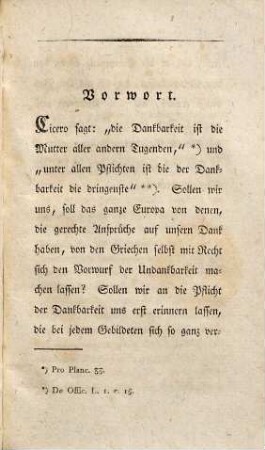 Vorwort.
Cicero sagt: „die Dankbarkeit ist die
Mutter aller andern Tugenden,“ *) und
„unter allen Pflichten ist die der Dank-
barkeit die dringenste“ **). Sollen wir
uns, soll das ganze Europa von denen,
die gerechte Ansprüche auf unsern Dank
haben, von den Griechen selbst mit Recht
sich den Vorwurf der Undankbarkeit ma-
chen lassen? Sollen wir an die Pflicht
der Dankbarkeit uns erst erinnern lassen,
die bei jedem Gebildeten sich so ganz ver-
*) Pro Planc. 33.
*) De Offic. L. 1. c. 15.